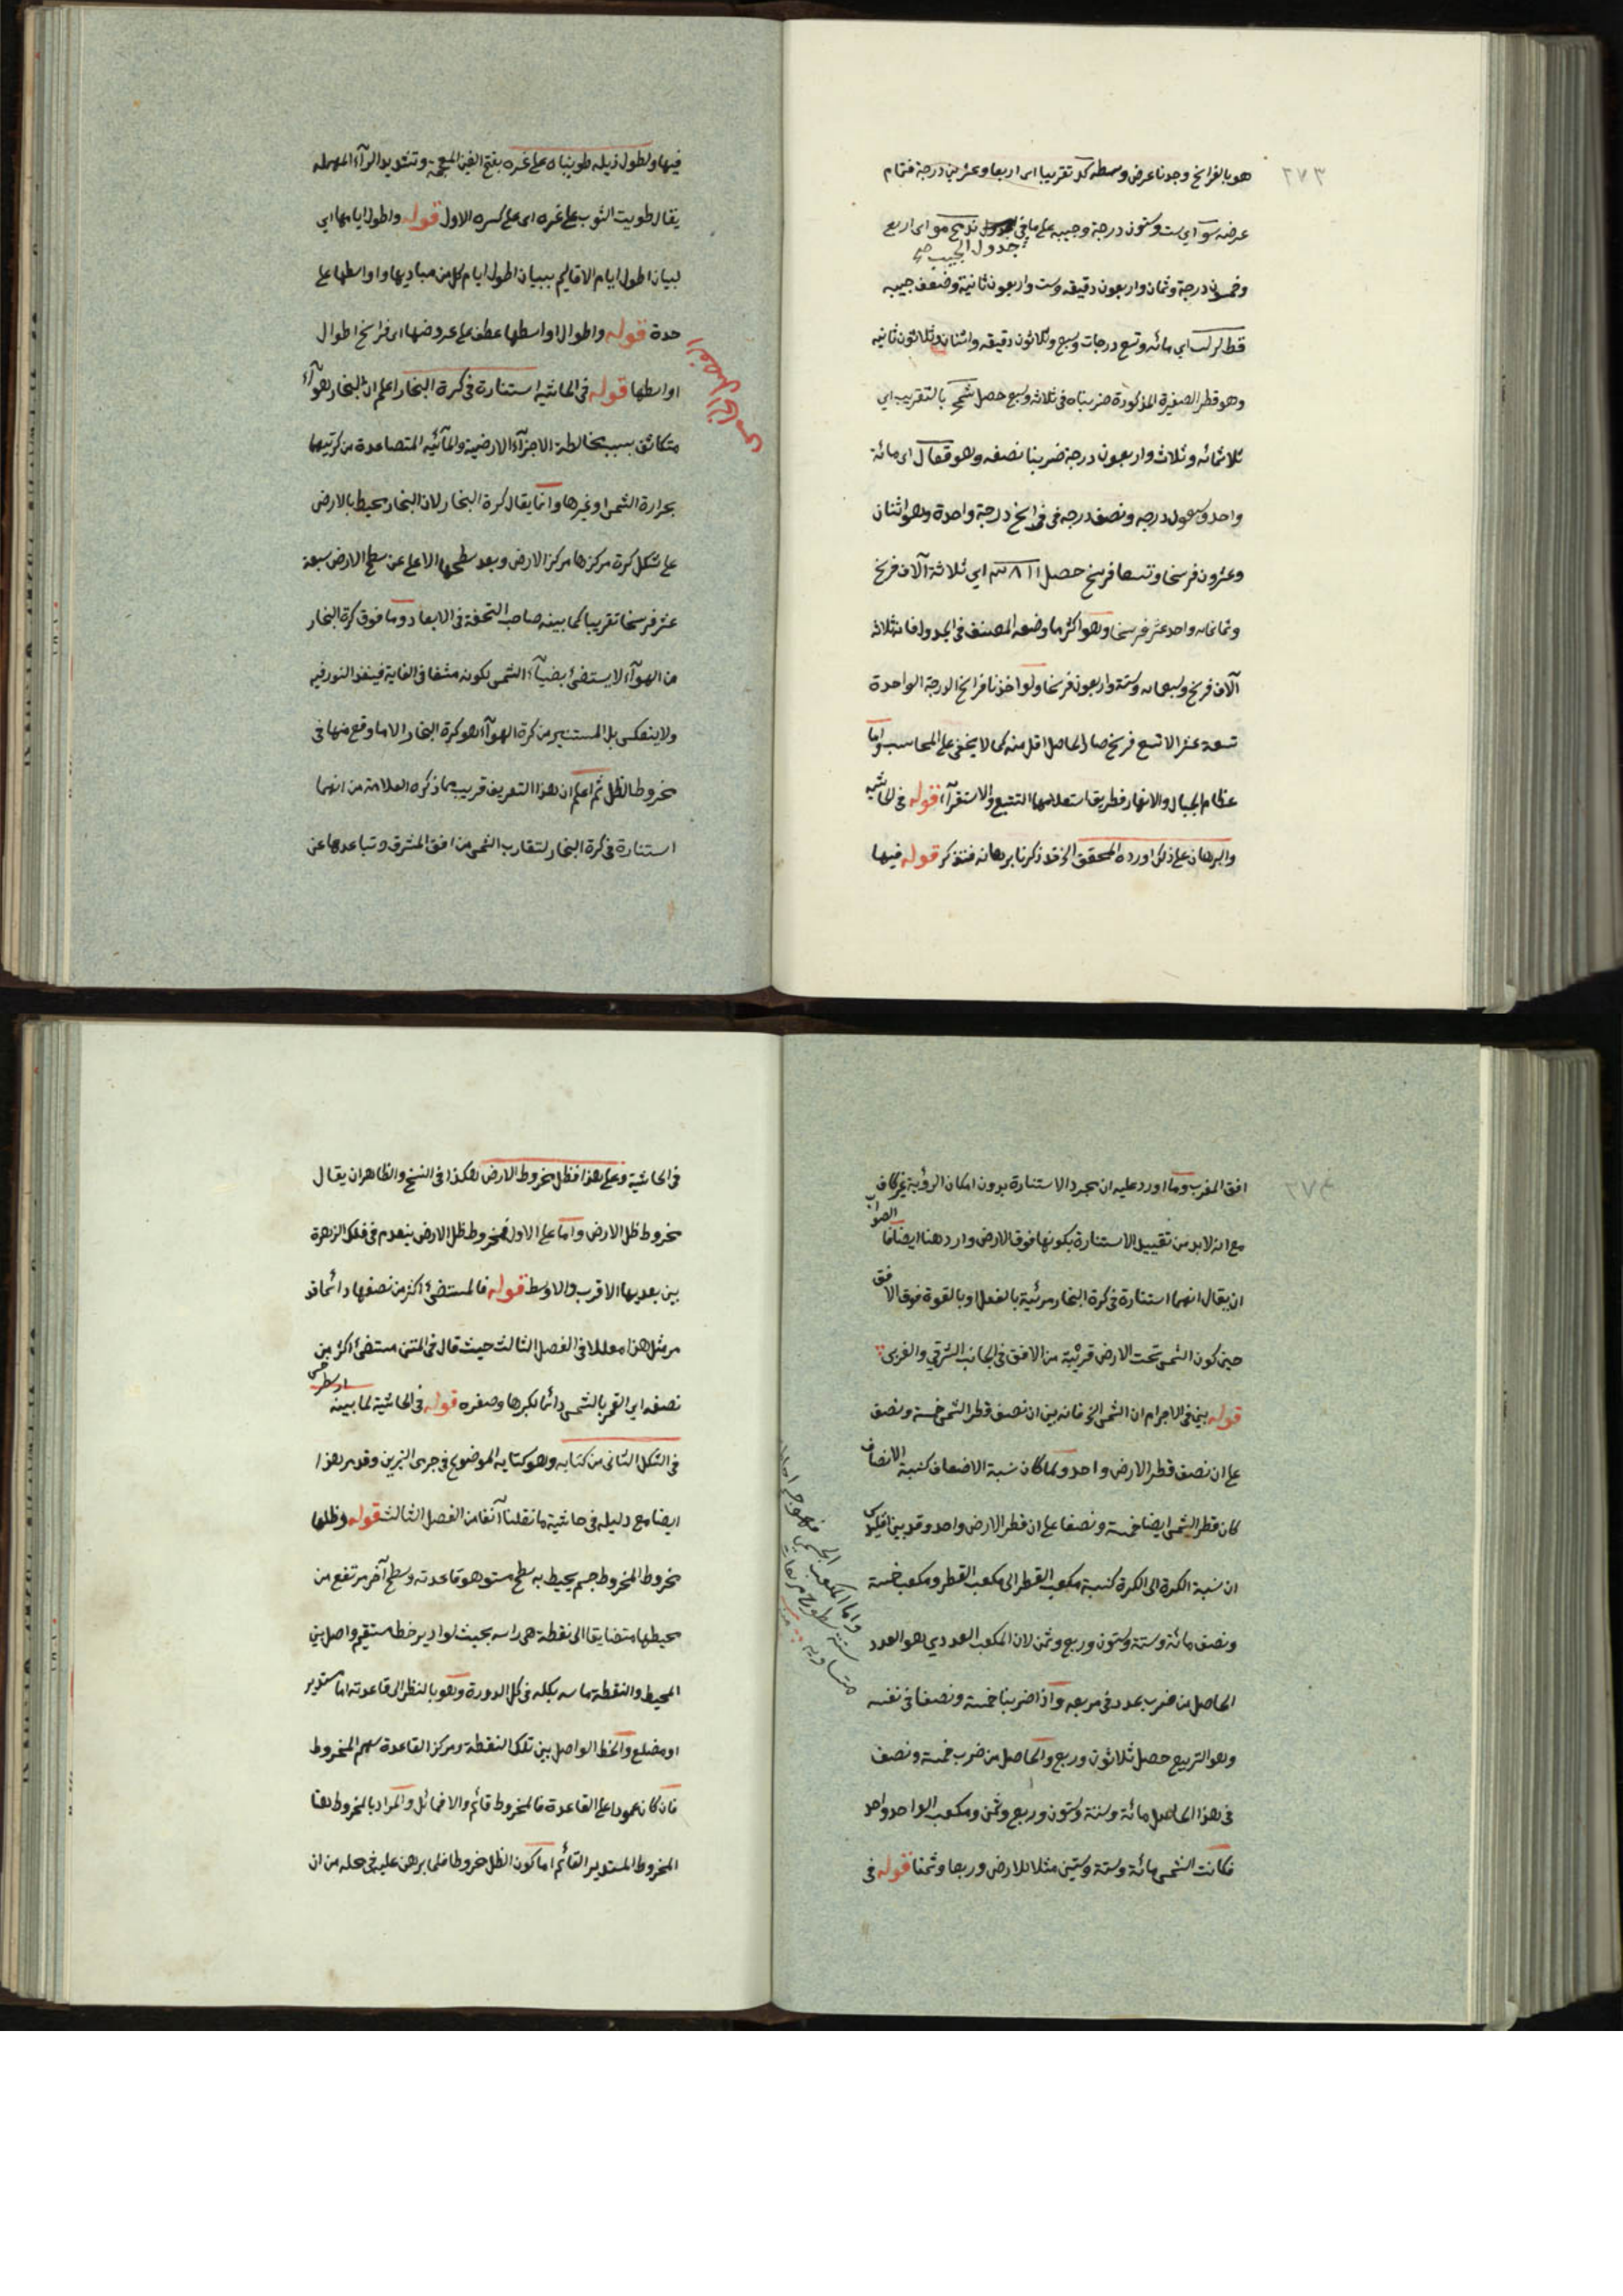 ٢٧٣
هو بالفراسخ وجدنا عرض وسطه كد تقريبا اى اربعا وعشرين درجة فتمام
عرضه سو اي ست وستون درجة وجيبه على ما فى ند مح مو اى اربع
جدول الجيب صح
وخمسون درجة وثمان واربعون دقيقه وست واربعون ثانية وضعف جيبه
قط لر لب اي مائه وتسع درجات وسبع وثلاثون دقيقه واثنتان وثلاثون ثانيه
وهو قطر الصغيرة المذكورة ضربناه فى ثلاثه وسبع حصل شمج بالتقريب اي
ثلاثمائه وثلاث واربعون درجة ضربنا نصفه وهو قعال اى مائة
واحد وسبعون درجه ونصف درجه فى فراسخ درجة واحدة وهو اثنان
وعشرون فرسخا وتسعا فرسخ حصل ٣٨١١ اي ثلاثة آلاف فرسخ
وثمانمائه واحد عشر فرسخا وهو اكثر مما وضعه المصنف فى الجدول فانه ثلاثه
آلاف فرسخ وسبعمائه وستة واربعون فرسخا ولو اخذنا فراسخ الدرجة الواحدة
تسعة عشر الا تسع فرسخ صار الحاصل اقل منه كما لا يخفى على المحاسب واما
عظام الجبال والانهار فطريق استعلامها التتبع والاستقرآء قوله فى الحاشيه
والبرهان على ذلك اورده المحقق الخ قد ذكرنا برهانه فتذكر قوله فيها
فيها ولطول ذيله طويناه على غره بفتح الغين المعجمه وتشديد الرآء المهمله
يقال طويت الثوب على غره اى على كسره الاول قوله واطول ايامها اي
لبيان اطول ايام الاقاليم ببيان اطول ايام كل من مباديها واواسطها على
حدة قوله واطوال اواسطها عطف على عروضها اى فراسخ اطوال
اواسطها قوله فى الحاشيه استنارة فى كرة البخار اعلم ان البخار هوآء
متكاثف بسبب مخالطة الاجزآء الارضية والمآئيه المتصاعدة من كرتيهما
بحرارة الشمس وغيرها وانما يقال كرة البخار لان البخار محيط بالارض
على شكل كرة مركزها مركز الارض وبعد سطحها الاعلى عن سطح الارض سبعة
عشر فرسخا تقريبا كما بينه صاحب التحفة فى الابعاد وما فوق كرة البخار
من الهوآء لا يستضئ بضيآء الشمس لكونه مشفا فى الغاية فينفذ النور فيه
ولا ينعكس بل المستنير من كرة الهوآء هو كرة البخار الا ما وقع منها فى
مخروط الظل ثم اعلم ان هذا التعريف قريب مما ذكره العلامة من انهما
استنارة فى كرة البخار لتقارب الشمس من افق المشرق وتباعدها عن
٢٧٤
افق المغرب وما اورد عليه ان مجرد الاستنارة بدون امكان الرؤية غير كاف
مع انه لا بد من تقييد الاستنارة بكونها فوق الارض وارد هنا ايضا فا
الصواب
ان يقال انهما استنارة فى كرة البخار مرئية بالفعل او بالقوة فوق الافق
حين كون الشمس تحت الارض قريبة من الافق فى الجانب الشرقي والغربى
قوله بين فى الاجرام ان الشمس الخ فانه بين ان نصف قطر الشمس خمسة ونصف
على ان نصف قطر الارض واحد ولما كان نسبة الاضعاف كنسبة الانصاف
كان قطر الشمس ايضا خمسة ونصفا على ان قطر الارض واحد وقد بين اقليدس
ان نسبة الكرة الى الكرة كنسبة مكعب القطر الى مكعب القطر ومكعب خمسة
ونصف مائة وستة وستون وربع وثمن لان المكعب العددي هو العدد
الحاصل من ضرب عدد فى مربعه واذا ضربنا خمسة ونصفا فى نفسه
وهو التربيع حصل ثلاثون وربع والحاصل من ضرب خمسة ونصف
فى هذا الحاصل مائة وستة وستون وربع وثمن ومكعب الواحد واحد
فكانت الشمس مائة وستة وستين مثلا للارض وربعا وثمنا قوله فى
واما المكعب الجسمى فهو جسم احاط به
ستة سطوح مربعات
متساويه
فى الحاشية وعلى هذا فظل مخروط الارض هكذا فى النسخ والظاهر ان يقال
مخروط ظل الارض واما على الاول فمخروط ظل الارض ينعدم فى فلك الزهرة
بين بعديها الاقرب والاوسط قوله فالمستضئ اكثر من نصفها دائما قد
مر مثل هذا معللا فى الفصل الثالث حيث قال فى المتن مستضئ اكثر من
نصفه اي القمر بالشمس دائما لكبرها وصغره قوله فى الحاشية لما بينه
ارسطرخس
فى الشكل الثانى من كتابه وهو كتابه الموضوع فى جرمى النيرين وقد مر هذا
ايضا مع دليله فى حاشية ما نقلنا آنفا من الفصل الثالث قوله وظلها
مخروط المخروط جسم يحيط به سطح مستو هو قاعدته وسطح آخر مرتفع من
محيطها متضايقا الى نقطة هى راسه بحيث لو ادير خط مستقيم واصل بين
المحيط والنقطة ماسه بكله فى كل الدورة وهو بالنظر الى قاعدته اما مستدير
او مضلع والخط الواصل بين تلك النقطة ومركز القاعدة سهم المخروط
فان كان عمودا على القاعدة فالمخروط قائم والا فمائل والمراد بالمخروط هنا
المخروط المستدير القائم اما كون الظل مخروطا فلما برهن عليه فى محله من ان